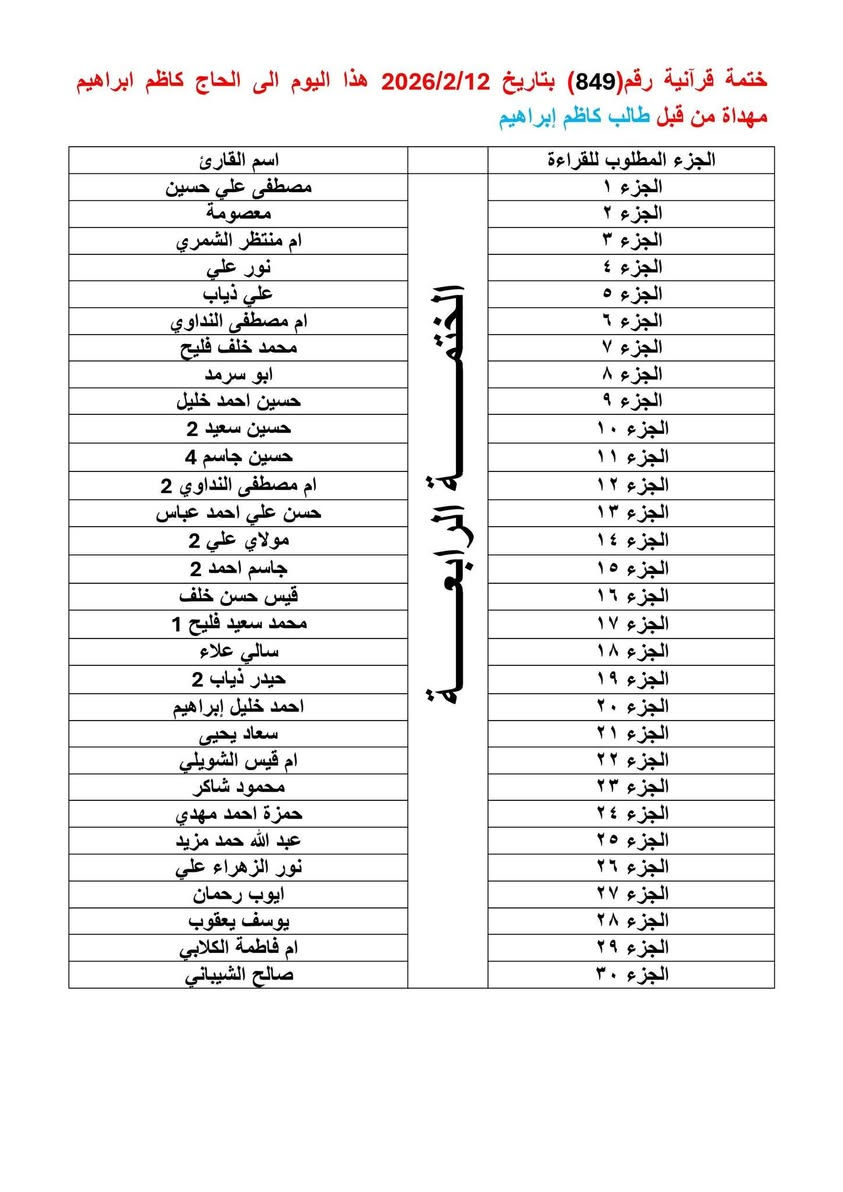 ختمة قرآنية رقم(849) بتاريخ 2026/2/12 هذا اليوم الى الحاج كاظم ابراهيم
مهداة من قبل طالب كاظم إبراهيم
الجزء المطلوب للقراءة اسم القارئ
الجزء ١ مصطفى علي حسين
الجزء ٢ معصومة
الجزء ٣ ام منتظر الشمري
الجزء ٤ نور علي
الجزء ٥ علي ذياب
الجزء ٦ ام مصطفى النداوي
الجزء ٧ محمد خلف فليح
الجزء ٨ ابو سرمد
الجزء ٩ حسين احمد خليل
الجزء ١٠ حسين سعيد 2
الجزء ١١ حسين جاسم 4
الجزء ١٢ ام مصطفى النداوي 2
الجزء ١٣ حسن علي احمد عباس
الجزء ١٤ مولاي علي 2
الجزء ١٥ جاسم احمد 2
الجزء ١٦ قيس حسن خلف
الجزء ١٧ محمد سعيد فليح 1
الجزء ١٨ سالي علاء
الجزء ١٩ حيدر ذياب 2
الجزء ٢٠ احمد خليل إبراهيم
الجزء ٢١ سعاد يحيى
الجزء ٢٢ ام قيس الشويلي
الجزء ٢٣ محمود شاكر
الجزء ٢٤ حمزة احمد مهدي
الجزء ٢٥ عبد الله حمد مزيد
الجزء ٢٦ نور الزهراء علي
الجزء ٢٧ ايوب رحمان
الجزء ٢٨ يوسف يعقوب
الجزء ٢٩ ام فاطمة الكلابي
الجزء ٣٠ صالح الشيباني
الختمـــــــة الرابعـــــــة